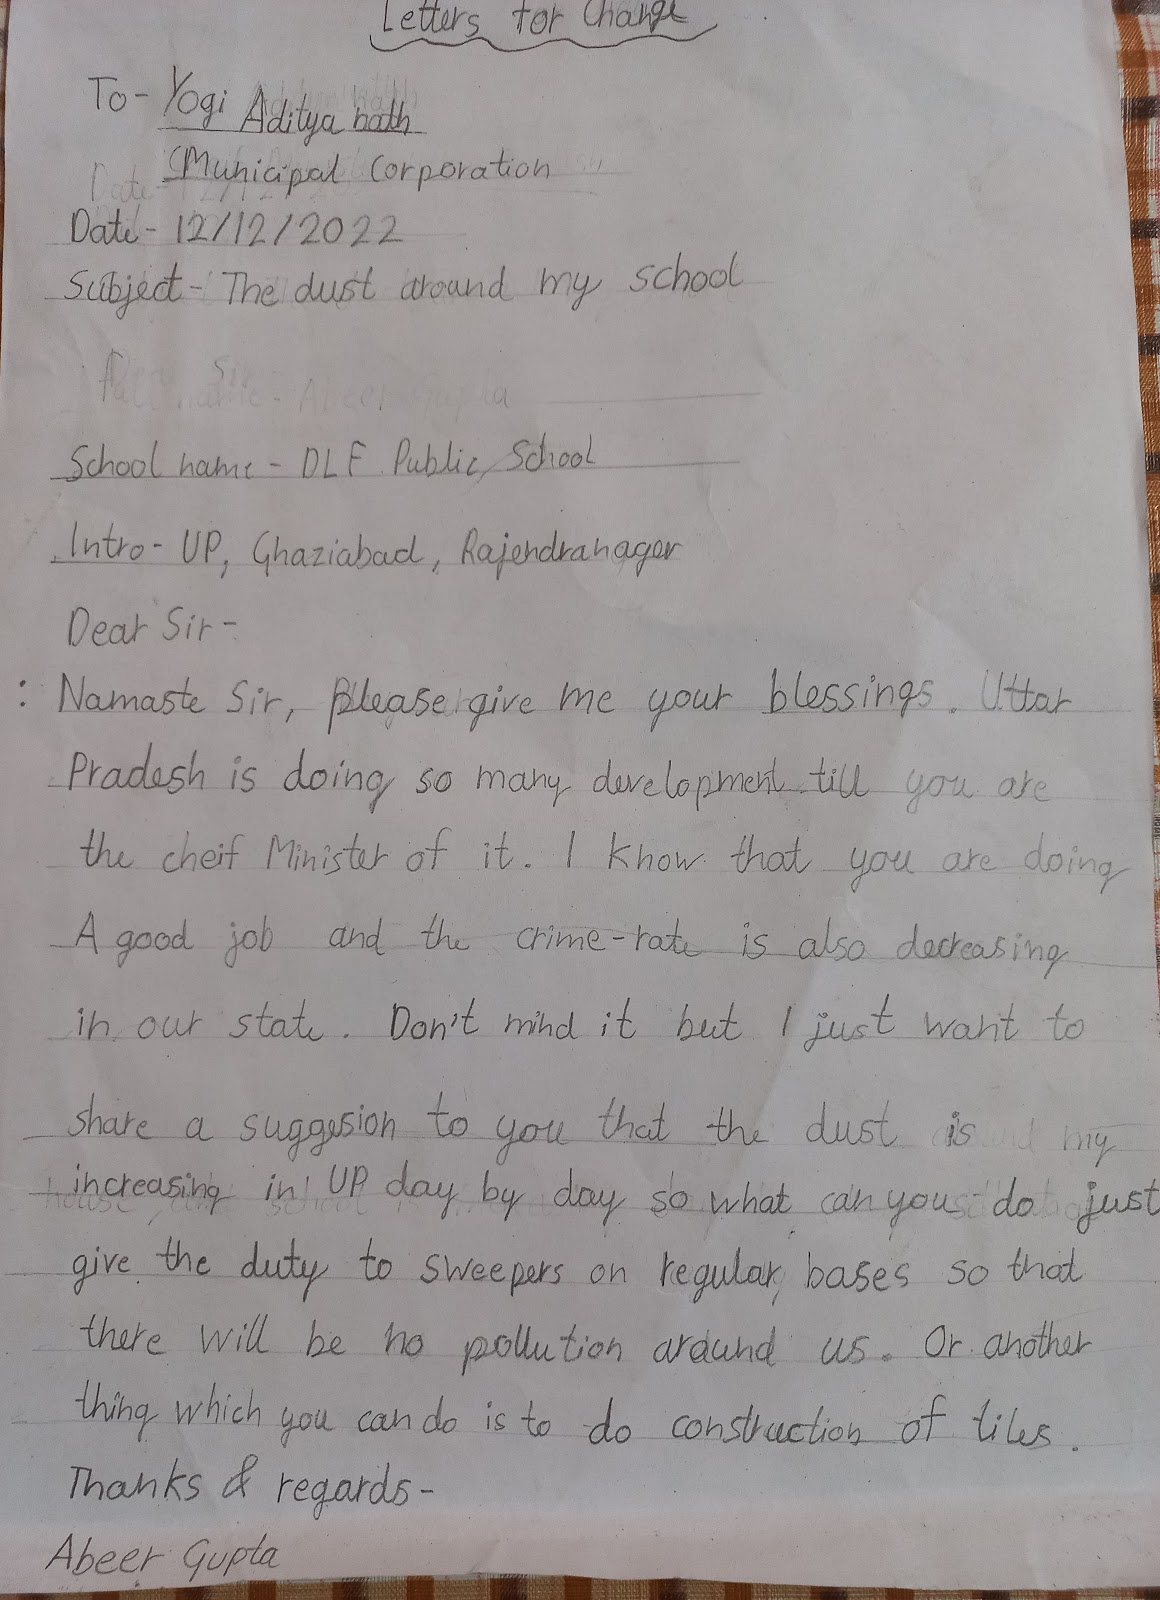 Letters for Change
To- Yogi Aditya nath
Municipal Corporation
Date- 12/12/2022
Subject- The dust around my school
School name- DLF Public School
Intro- UP, Ghaziabad, Rajendranagar
Dear Sir-
: Namaste Sir, Please give me your blessings. Uttar
Pradesh is doing so many development till you are
the cheif Minister of it. I know that you are doing
A good job and the crime-rate is also decreasing
in our state. Don't mind it but I just want to
share a suggesion to you that the dust is
increasing in UP day by day so what can you do just
give the duty to sweepers on regular bases so that
there will be no pollution around us. Or another
thing which you can do is to do construction of tiles.
Thanks & regards-
Abeer Gupta